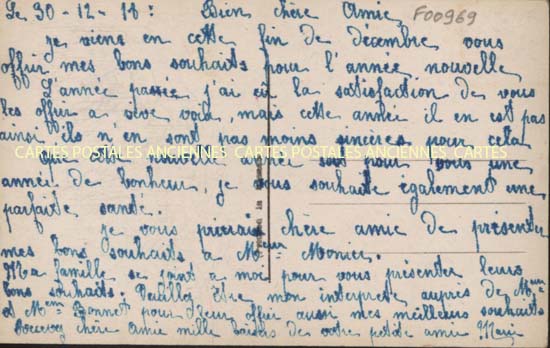 Le 30-12-18: Bien chère Amie
F00969
je viens en cette fin de décembre vous
offrir mes bons souhaits pour l'année nouvelle
L'année passée j'ai eû la satisfaction de vous
les offrir a vive voix, mais cette année il en est pas
ainsi ils n'en sont pas moins sincères pour cela
CARTES POSTALES ANCIENNES CARTES POSTALES ANCIENNES CARTES
Que cette nouvelle année soit pour vous une
année de bonheur, je vous souhaite également une
parfaite santé.
je vous prierais chère amie de présenter
mes bons souhaits à Msieur Monier.
Ma famille se joint a moi pour vous présenter leurs
bons souhaits. Veuillez être mon interprete auprès de Mme
et Mme Bonnet pour leur offrir aussi mes meilleurs souhaits
Recevez chère amie mille baisers de votre petite amie Marie